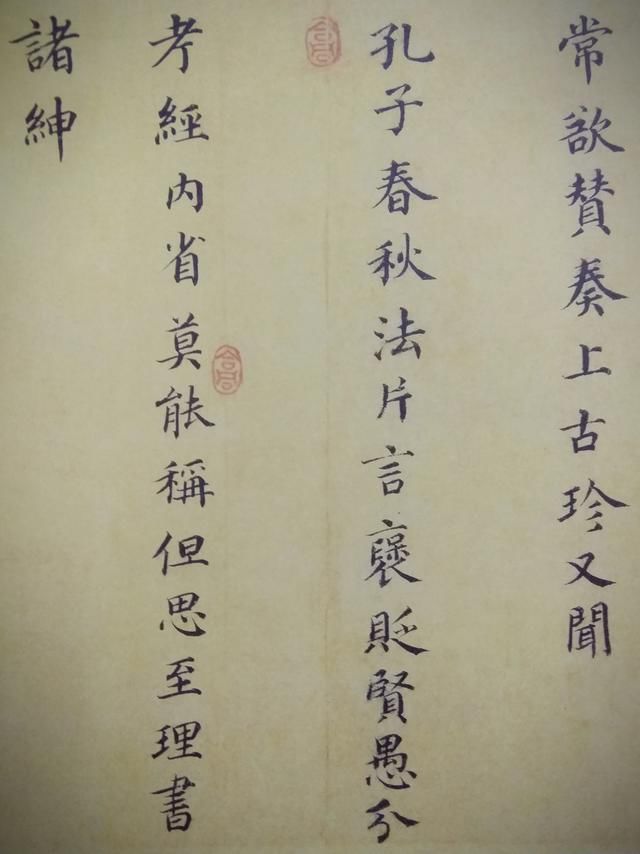 常欲賛奏上古珍又聞
孔子春秋法片言襃貶賢愚分
考經内省莫能稱但思至理書
諸紳